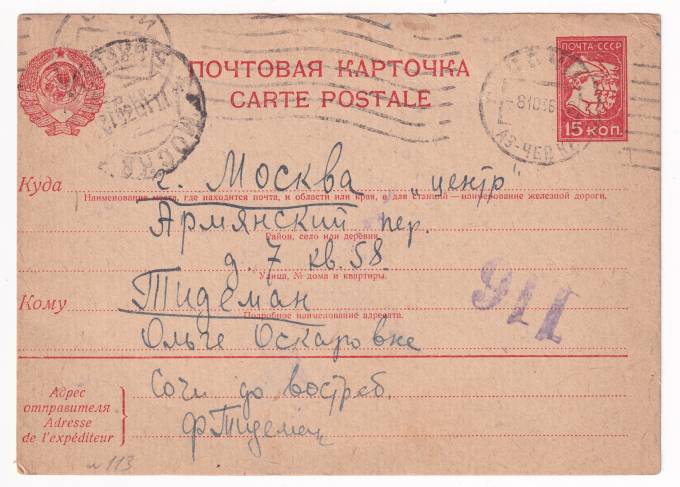 ПОЧТОВАЯ КАРТОЧКА
CARTE POSTALE
ПОЧТА-СССР
15 КОП.
МОСКВА
АЗ-ЧЕР
Куда г. Москва „центр"
Наименование места, где находится почта, и области или края, а для станций—наименование железной дороги.
Армянский пер.
Район, село или деревня.
д. 7 кв. 58
Улица, № дома и квартиры.
Кому Тидеман
Подробное наименование адресата.
Ольге Оскаровне
911
Адрес отправителя
Adresse de l'expéditeur
Сочи до востреб.
Ф Тидеман
№ 113